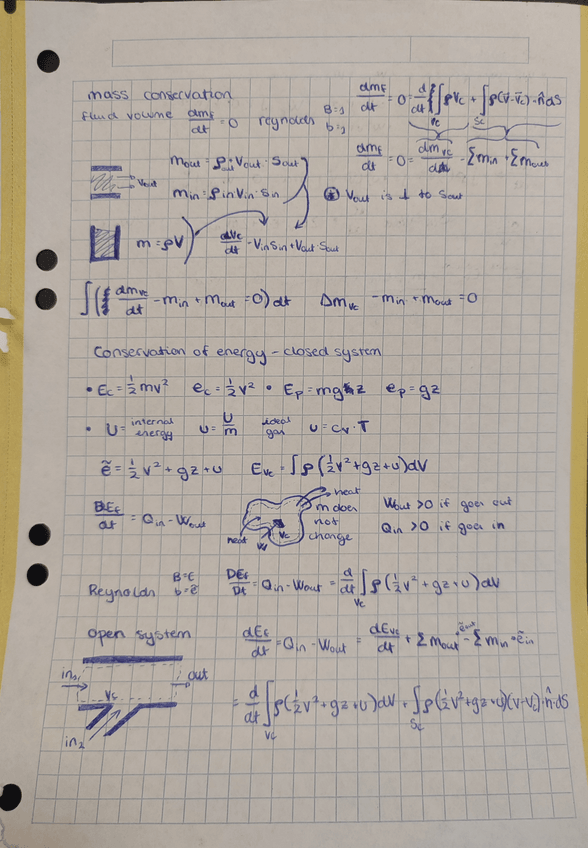 mass conservation
fluid volume dm_f/dt = 0 reynolds B=1 b=1
dm_f/dt = 0 = d/dt ∫_Vc ρ Vc + ∫_Sc ρ(v̄-v̄c)·n̂ dS
dm_f/dt = 0 = dm_vc/dt - Σṁ_in + Σṁ_out
m_out = ρ_out · V_out · S_out
V_out
m_in = ρ_in V_in · S_in
⊛ V_out is ⊥ to S_out
m = ρV
dVc/dt - V_in S_in + V_out S_out
∫( dm_vc/dt - m_in + m_out = 0) dt Δm_vc - m_in + m_out = 0
Conservation of energy - closed system
• E_c = 1/2 mv² e_c = 1/2 v² • E_p = mgz e_p = gz
• U = internal energy u = U/m ideal gas u = cv·T
ẽ = 1/2 v² + gz + u E_vc = ∫ρ(1/2 v² + gz + u)dV
DE_f/dt = Q_in - W_out
heat
m does not change
Vc
heat
W
W_out > 0 if goes out
Q_in > 0 if goes in
Reynolds B=E b=ẽ DE_f/Dt = Q_in - W_out = d/dt ∫_Vc ρ(1/2 v² + gz + u)dV
open system
dE_f/dt = Q_in - W_out = dE_vc/dt + Σm_out·ẽ_out - Σm_in·ẽ_in
in_1
Vc
out
in_2
= d/dt ∫_Vc ρ(1/2 v² + gz + u)dV + ∫_Sc ρ(1/2 v² + gz + u)(v-vc)·n̂·dS